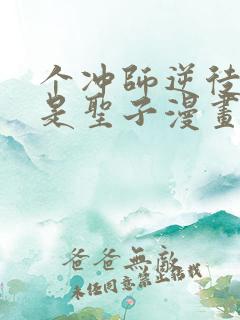 个冲師逆徒
是聖子漫畫
爸爸無敵
未经同意禁止转载